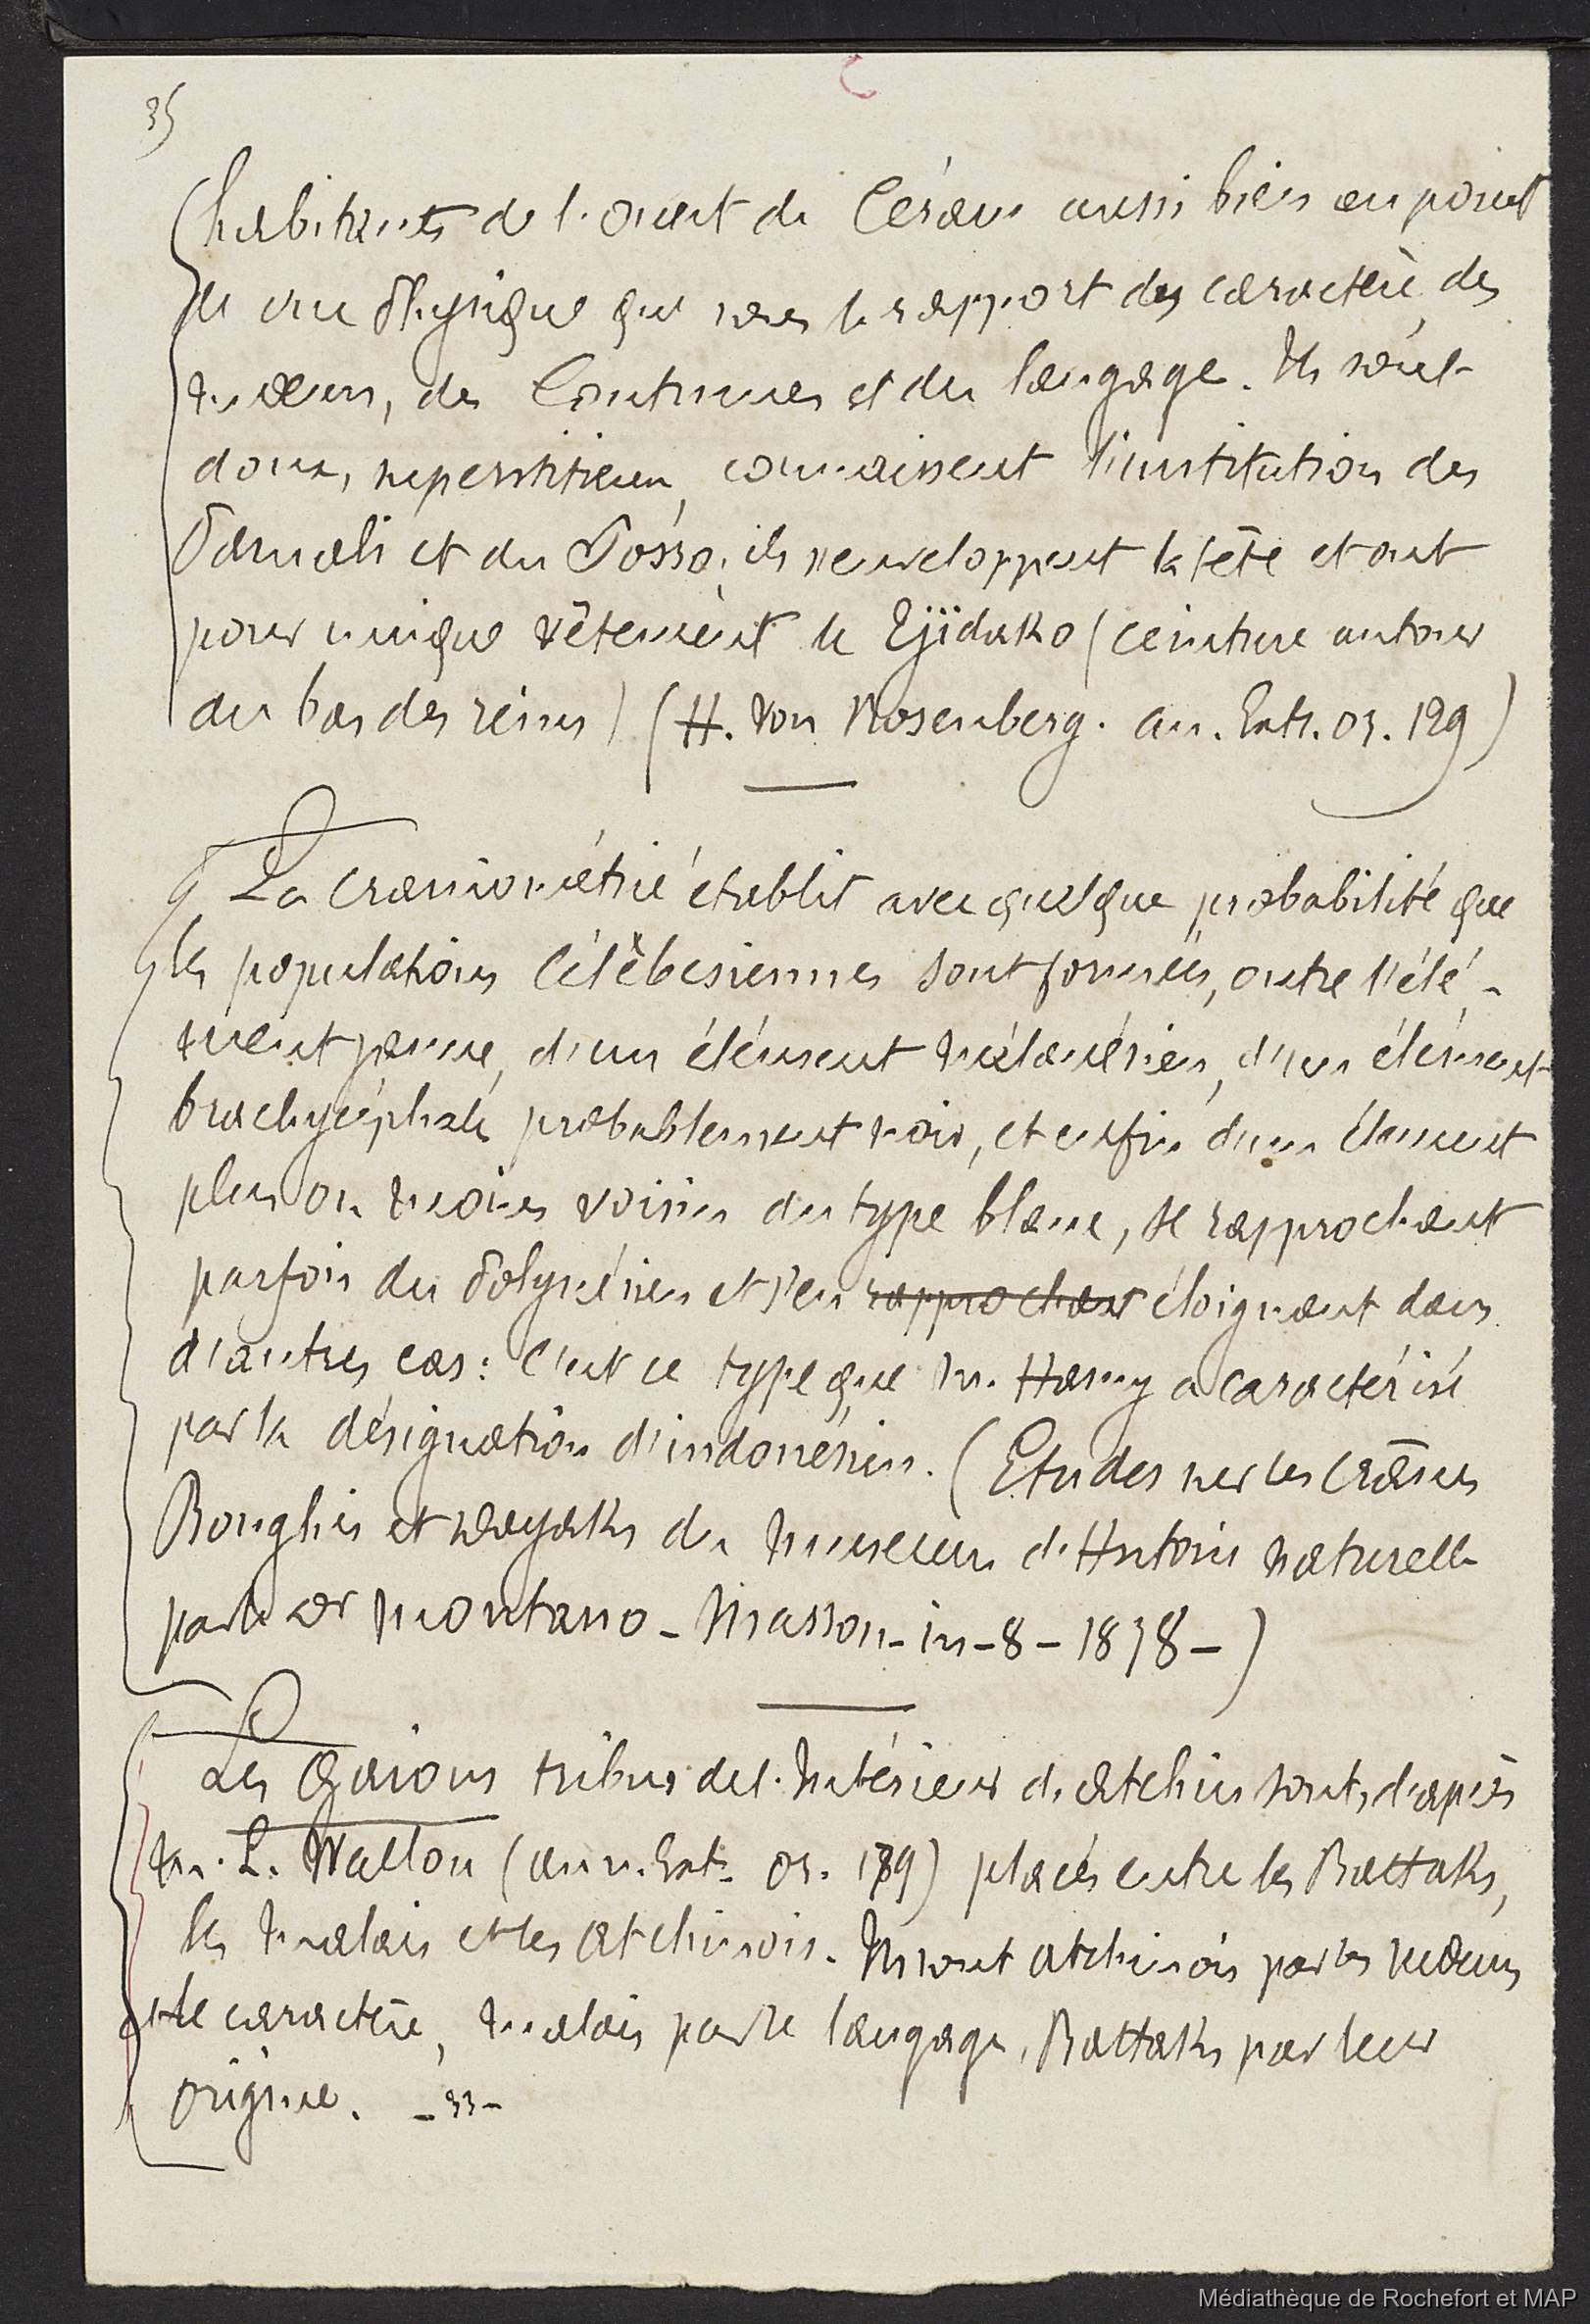 35
habitants de l'ouest de Céram aussi bien au point
de vue Physique que sous le rapport des caractère, des
mœurs, des Coutumes et du langage. Ils sont
doux, superstitieux, connaissent l'institution des
Pamali et du Sosso, ils s'enveloppent la tête et ont
pour unique vêtement le Tjidako (ceinture autour
du bas des reins) (H. Von Rosenberg. an. Extr. or. 129)
La craniométrie établit avec quelque probabilité que
les populations Célèbesiennes sont formées, outre l'élé-
ment jaune, d'un élément mélanésien, d'un élément
brachycéphale probablement noir, et enfin d'un élement
plus ou moins voisin du type blanc, se rapprochant
parfois du Polynésien et s'en rapprochant éloignant dans
d'autres cas: c'est ce type que M. Hamy a caractérisé
par la désignation d'indonésien. (Etudes sur les crânes
Boughis et dayaks du Museum d'Histoire naturelle
par le Dr Montano - Masson - in-8 - 1878 -)
Les Gaious tribus de l'Intérieur d'Atchin sont, d'après
M. L. Wallon (ann. Ext. or. 189) placés entre les Battaks,
les Malais et les Atchinois. Ils sont atchinois par les mœurs
et le caractère, malais par le langage, Battaks par leur
origine. - 33 -
Médiathèque de Rochefort et MAP